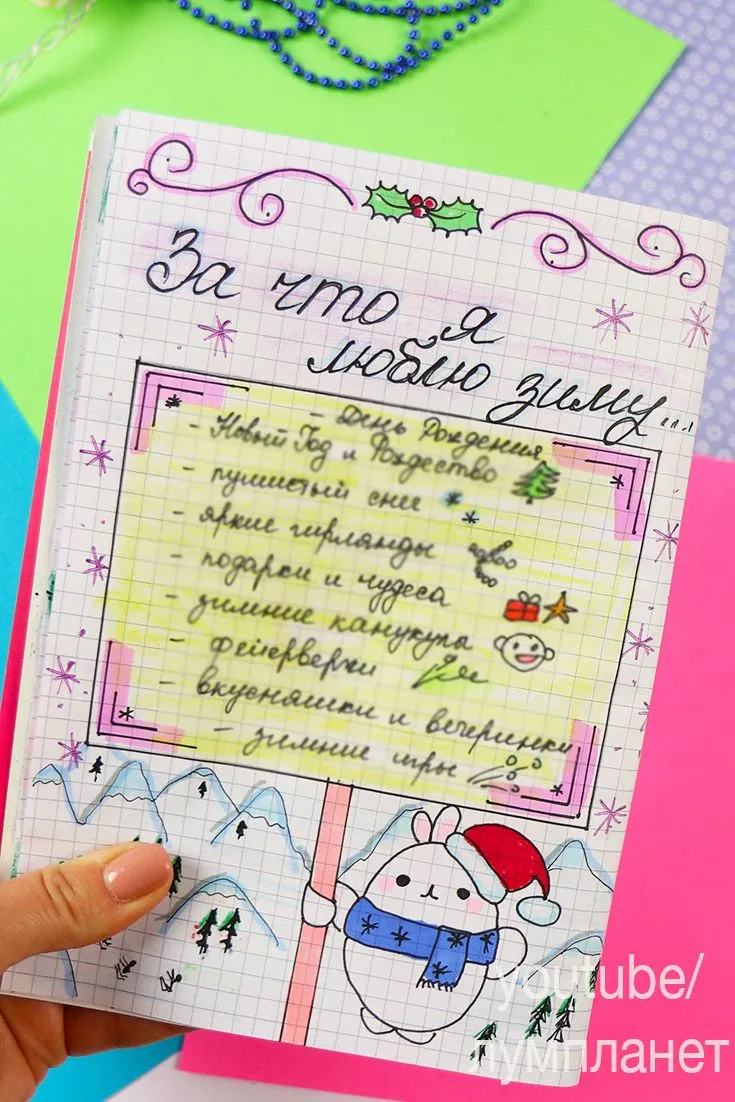 За что я
люблю зиму...
- День Рождения
- Новый Год и Рождество
- пушистый снег
- яркие гирлянды
- подарки и чудеса
- зимние каникулы
- фейерверки
- вкусняшки и вечеринки
- зимние игры
youtube/
лумпланет